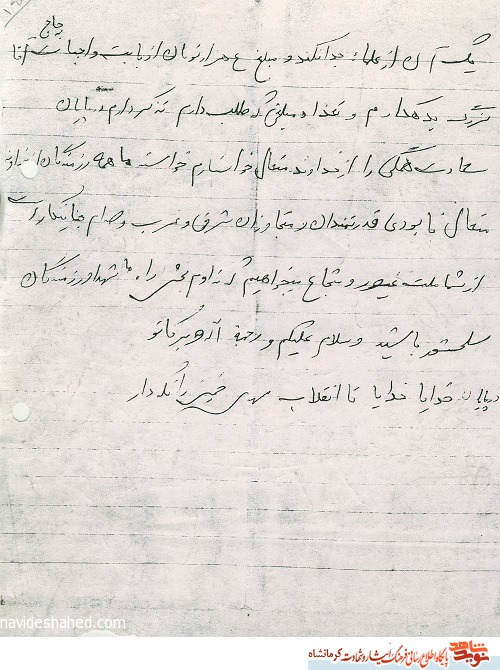 حاج
یک آن از علماء جدا نکند و مبلغ ع هزار تومان از بابت واجبات آقا
بزرگ بدهکارم و تعداد مبلغی که طلب دارم تذکر دارم در پایان
سعادت همگی را از خداوند متعال خواستارم خواست ما همه رزمندگان از خداوند
متعال نابودی قدرتمندان و متجاوزان شرقی و غرب و صدام جنایتکار است
از شما ملت غیور و شجاع میخواهیم که تداوم بخش راه ما شهدا و رزمندگان
سلحشور باشید و سلام علیکم و رحمة الله و برکاتو
در پایان خدایا خدایا تا انقلاب مهدی خمینی را نگه دار
navideshahed.com
نوید شاهد
پایگاه اطلاع رسانی فرهنگ ایثار و شهادت کرمانشاه